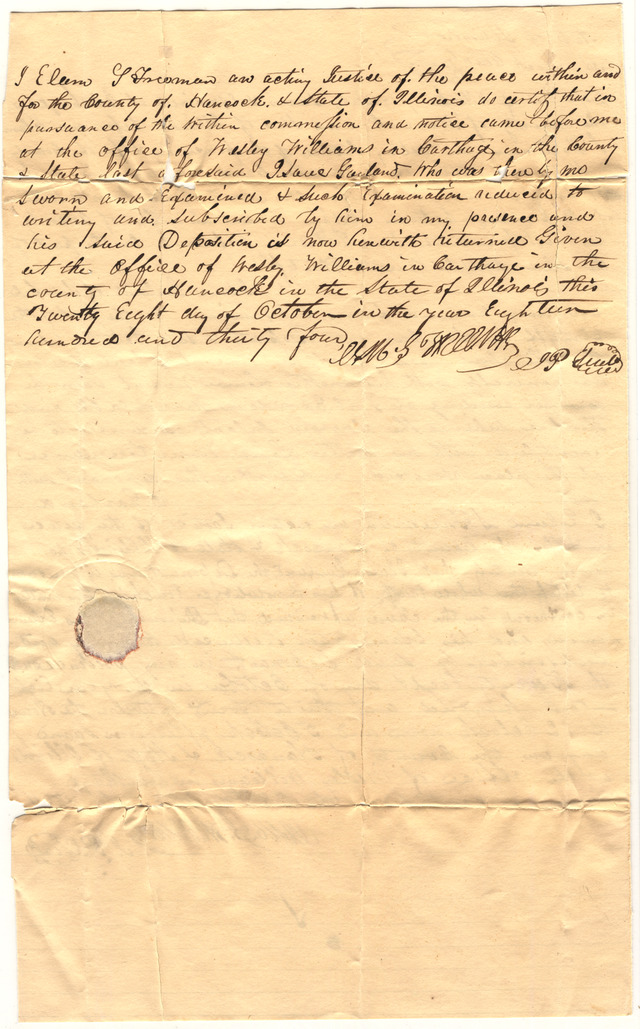 I Elam S Freeman an acting Justice of the peace within and
for the County of Hancock & State of Illinois do certify that in
pursuance of the within commission and notice came before me
at the office of Wesley Williams in Carthage in the County
& State last aforesaid Isaac Garland. Who was then by me
Sworn and Examined & such Examination reduced to
writing and subscribed by him in my presence and
his said Deposition is now herewith returned Given
at the Office of Wesley Williams in Carthage in the
county of Hancock in the State of Illinois this
Twenty Eight day of October in the year Eighteen
hundred and thirty four
Freeman JP Seal